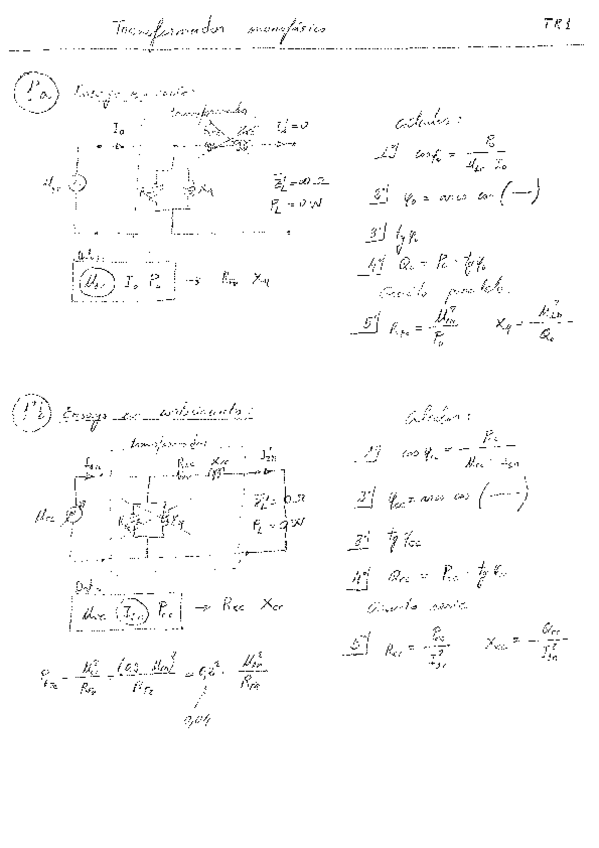 Transformador monofásico TR1
1ºa Ensayo en vacío:
transformador
I₀ I₂'=0
U₁ₙ R_Fe X_μ Z_L'=∞ Ω
P_L = 0 W
Datos
U₁ₙ I₀ P₀ → R_Fe X_μ
Cálculos:
1º) cos φ₀ = P₀ / (U₁ₙ · I₀)
2º) φ₀ = arc cos (—)
3º) tg φ₀
4º) Q₀ = P₀ · tg φ₀
Circuito paralelo.
5º) R_Fe = U₁ₙ² / P₀ X_μ = U₁ₙ² / Q₀
1ºb Ensayo en cortocircuito:
transformador
I₁ₙ R_cc X_cc I₂ₙ'
U_cc R_Fe X_μ Z_L' = 0 Ω
P_L = 0 W
Datos
U_cc I₁ₙ P_cc → R_cc X_cc
P_Fe = U_cc² / R_Fe = (0,2 · U₁ₙ)² / R_Fe = 0,2² · U₁ₙ² / R_Fe
0,04
Cálculos:
1º) cos φ_cc = P_cc / (U_cc · I₁ₙ)
2º) φ_cc = arc cos (—)
3º) tg φ_cc
4º) Q_cc = P_cc · tg φ_cc
Circuito serie
5º) R_cc = P_cc / I₁ₙ² X_cc = Q_cc / I₁ₙ²